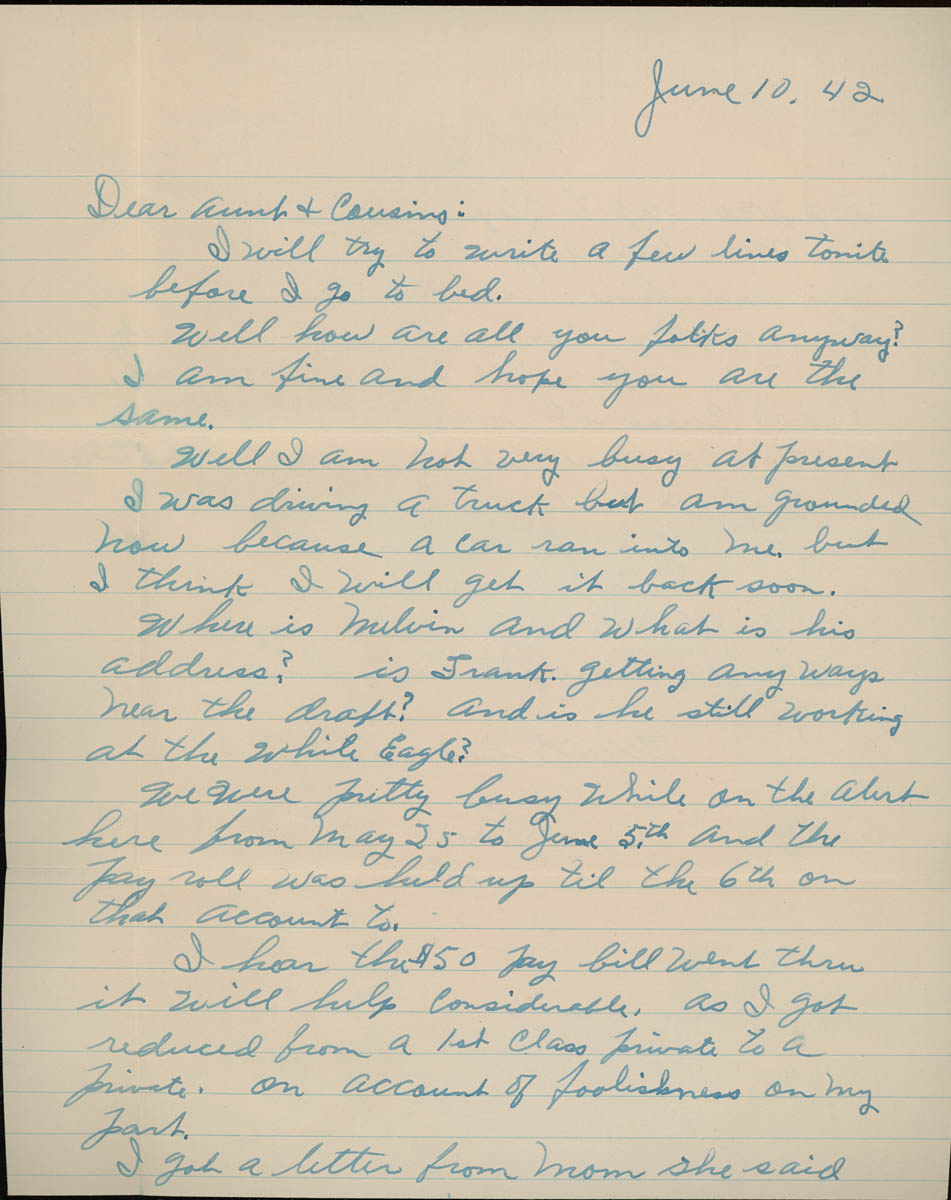 June 10. 42
Dear Aunt & Cousins:
I will try to write a few lines tonite
before I go to bed.
Well how are all you folks anyway?
I am fine and hope you are the
same.
Well I am not very busy at present
I was driving a truck but am grounded
now because a car ran into me. but
I think I will get it back soon.
Where is Melvin and what is his
address? is Frank. getting any ways
near the draft? and is he still working
at the White Eagle?
We were pretty busy while on the alert
here from May 25 to June 5th and the
pay roll was held up til the 6th on
that account to.
I hear the $50 pay bill went thru
it will help considerable. as I got
reduced from a 1st Class private to a
private. on account of foolishness on my
part.
I got a letter from Mom she said